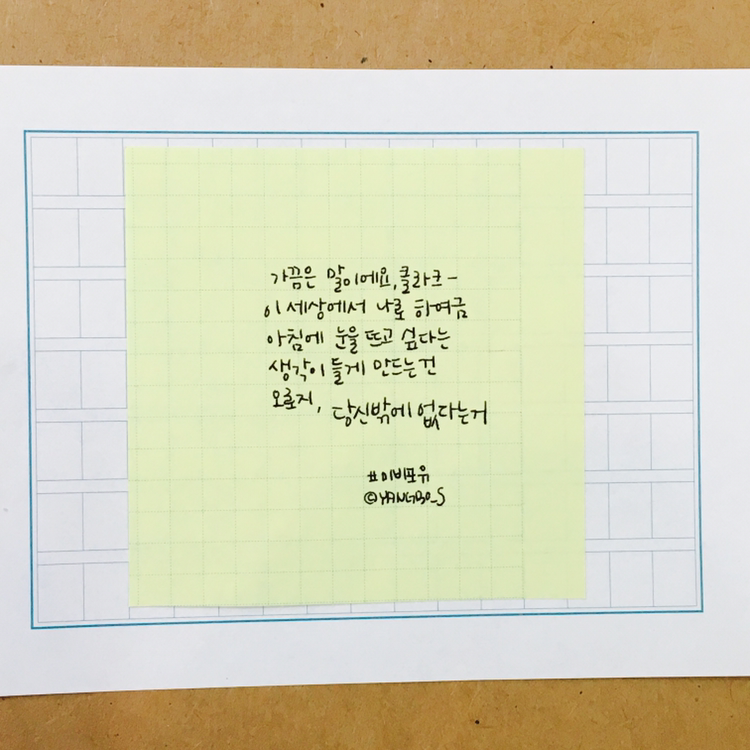 가끔은 말이에요, 클라크-
이 세상에서 나로 하여금
아침에 눈을 뜨고 싶다는
생각이 들게 만드는건
오로지, 당신밖에 없다는거
#미비포유
©YANGBO_S